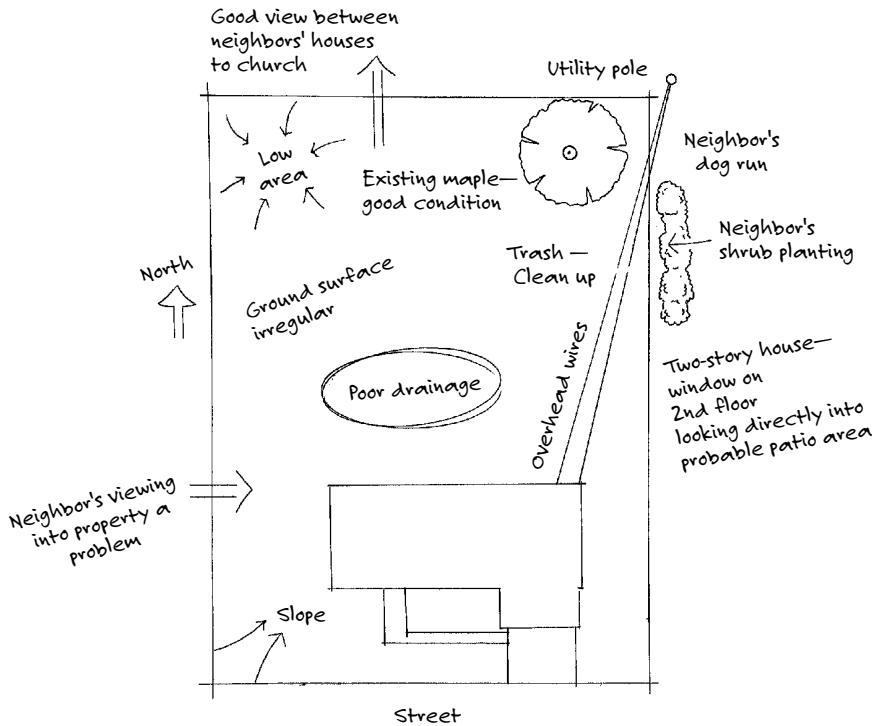 Good view between
neighbors' houses
to church
Utility pole
Low
area
Existing maple—
good condition
Neighbor's
dog run
Neighbor's
shrub planting
Trash —
Clean up
North
Ground surface
irregular
Overhead wires
Poor drainage
Two-story house—
window on
2nd floor
looking directly into
probable patio area
Neighbor's viewing
into property a
problem
Slope
Street